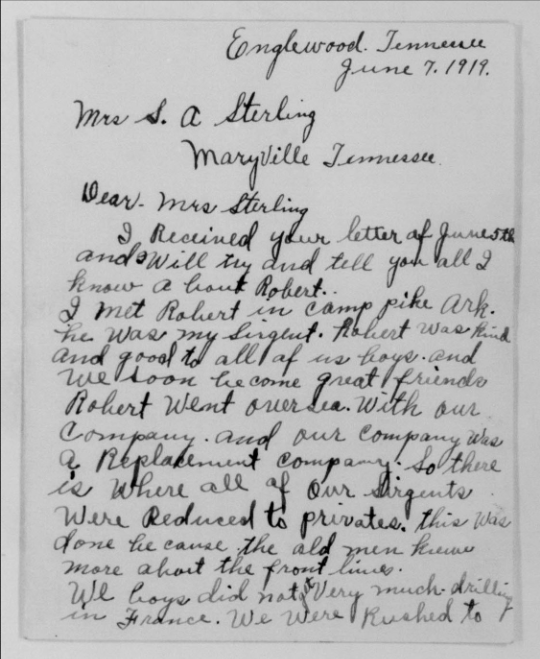 Englewood. Tennessee
June 7. 1919.
Mrs S. A Sterling
Maryville Tennessee.
Dear. Mrs Sterling
I Received your letter of June 5th
and Will try and tell you all I
know a bout Robert..
I met Robert in camp pike Ark.
he was my Sirgent. Robert was kind
and good to all of us boys. and
We soon become great friends
Robert Went oversea. With our
Company. and our company was
a Replacement company. So there
is Where all of our Sirgents
Were Reduced to privates. this was
done be cause the old men knew
more about the front lines.
We boys did not Very much drilling
in France. We Were Rushed to